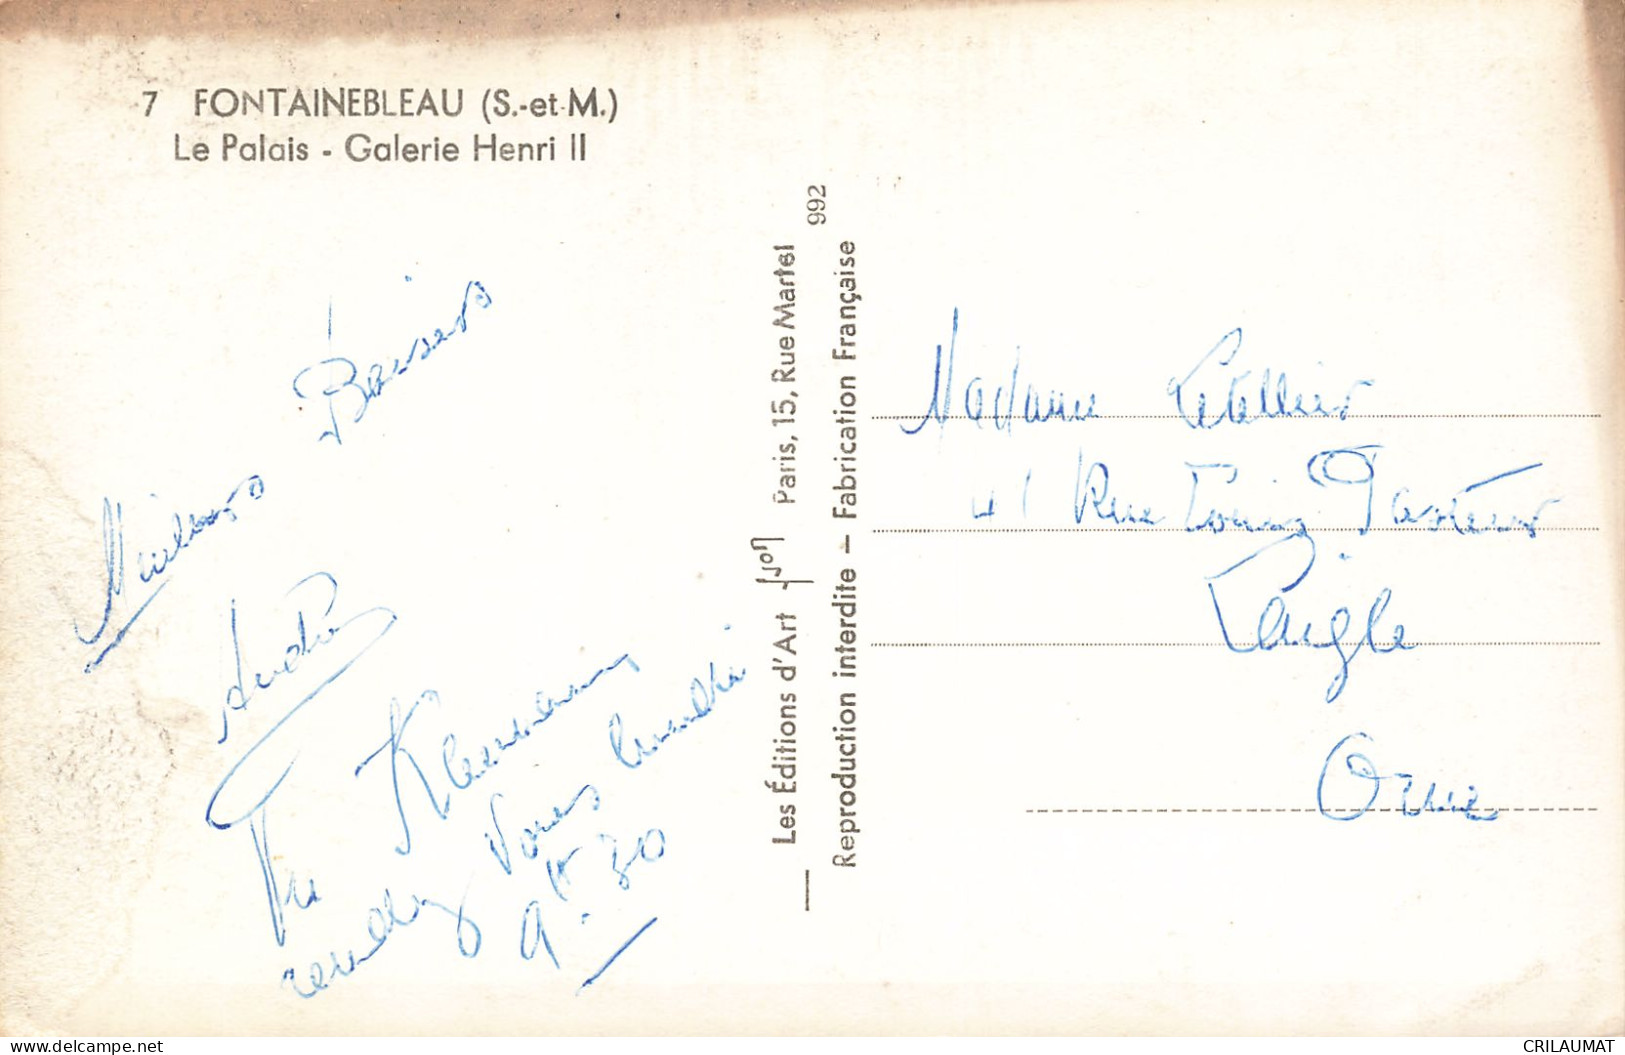 7 FONTAINEBLEAU (S.-et-M.)
Le Palais - Galerie Henri II
Meilleurs Baisers
André
Vu
rendez Vous lundi
9 h 30
Les Éditions d'Art Yvon Paris, 15, Rue Martel
992
Reproduction interdite — Fabrication Française
Madame Letellier
41 Rue Louis Pasteur
Laigle
Orne
www.delcampe.net
CRILAUMAT